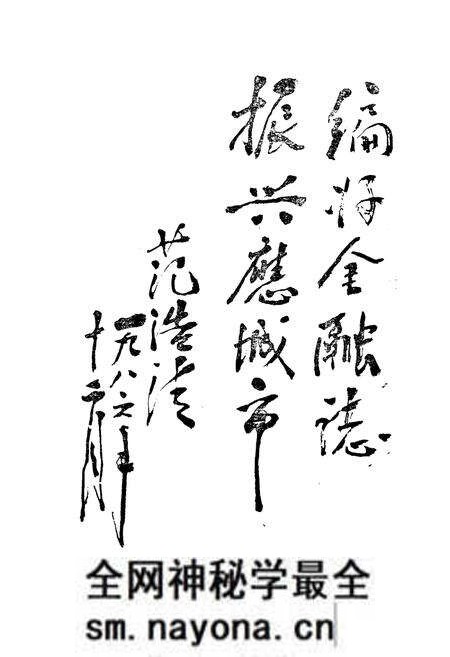 编好金融誌
振兴應城市
范浩清
一九八六年
十二月
全网神秘学最全
sm.nayona.cn